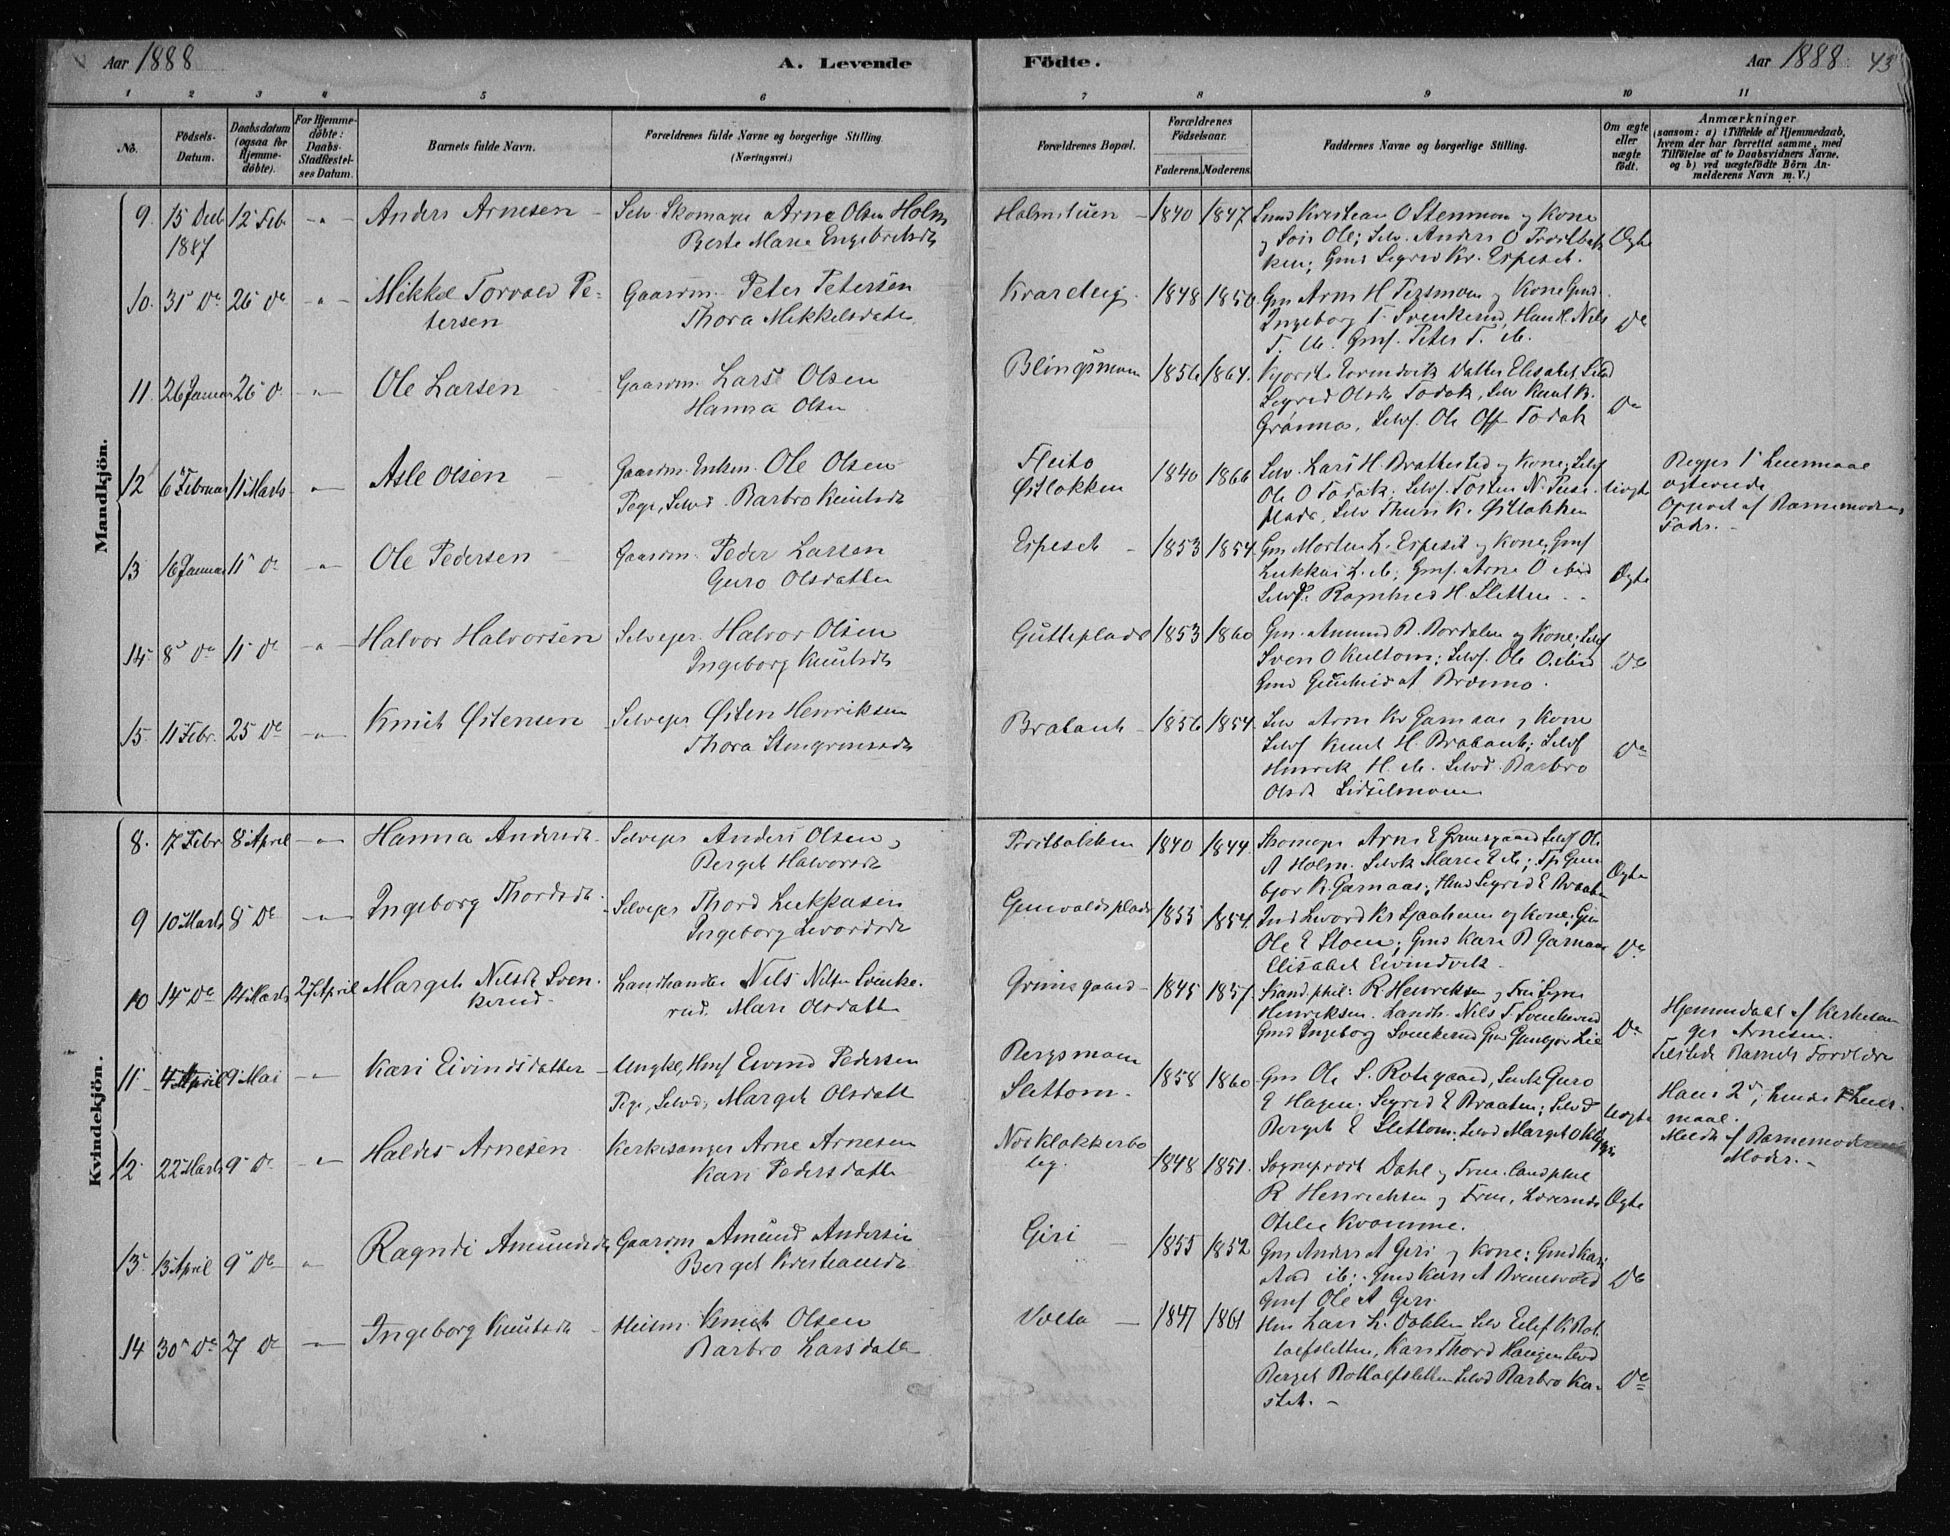 Aar 1888
A. Levende
Födte.
Aar 1888 43
1 2 3 4 5 6 7 8 9 10 11
No.
Födsels-
Datum.
Daabsdatum
(ogsaa for
Hjemme-
döbte).
For Hjemme-
döbte:
Daabs-
Stadfæstel-
ses Datum.
Barnets fulde Navn.
Forældrenes fulde Navne og borgerlige Stilling
(Næringsvei.)
Forældrenes Bopæl.
Forældrenes
Födselsaar.
Faderens. Moderens.
Faddernes Navne og borgerlige Stilling.
Om ægte
eller
uægte
födt.
Anmærkninger
(saasom: a) i Tilfælde af Hjemmedaab,
hvem der har forrettet samme, med
Tilföielse af to Daabsvidners Navne,
og b) ved uægtefödte Börn An-
melderens Navn m. V.)
Mandkjön.
9. 15 Decb 12 Feb. -"- Anders Arnesen - Selv. Skomager Arne Olsen Holm
1887 Berte Marie Engebretsdt
Holmstuen - 1840 1847 Kristian O Stenmoen og Kone
og Ole; Selv. Anders O
Gmd Sigrid Kr. Espeset. Ægte
10. 31 De 26 De -"- Mikkel Torvald Pe-
tersen
Gaardm. Peter Petersen
Thora Mikkelsdatter
1848 1850. Gm Arne H og Kone Gmd.
Ingeborg T Svenkerud, Nils
T. ib. Gmf. Peter T. ib. De
11. 26 Januar 26 D. -"- Ole Larsen
Gaardm. Lars Olsen
Hanna Olsen
1856 1864. Datter Elisabet
Sigrid Olsdt Todok, Selv Knut K.
Grönnos, Selvf. Ole Todok De
12 6 Februar 11 Marts -"- Asle Olsen -
Gaardm. Enkem. Ole Olsen
Pige, Selvd. Barbro Knutsdt
Østlokken 1840 1866 Selv. Lars H. Brattested og Kone; Selvf
Ole O Todok; Selvf. Torsten N.
plads, Selv K. Østlokken Uægte
Begges 1ste Leiermaal
Opgivet af Barnemodrens
Fader. -
13 16 Januar 11 De -"- Ole Pedersen -
Gaardm. Peder Larsen
Guro Olsdatter
Espeset - 1853 1854. Gm Morten L. Espeset og Kone; Gmf
Lukkas L. ib; Gmf. Arne O ibid
Selvd. Ragnhild H. Sletten. - Ægte
14. 8 De 11 De -"- Halvor Halvorsen
Selveier. Halvor Olsen
Ingeborg Knutsdt
Gutteplads 1853 1860 Gm. Amund B. Bordalen og Kone; Selvf
Sven O Kultom; Selvf. Ole O. ibid
Gmd Gunhild A Bromo. De
15. 11 Febr. 25 De -"- Knut Østensen
Selveier Østen Henriksen
Thora Stengrimsdt
Brabant - 1856 1854. Selv Arne Kr Garnaas og Kone
Selvf Knut H. Brabant; Selvf
Henrik H. ib. Selvd. Barbro
Olsdt Sidselmoen De
Kvindekjön.
8. 17 Febr 8 April -"- Hanna Andersdt.
Selveier Anders Olsen,
Berget Halvorsdt
1840 1844. Skomager Arne E Grimsgaard Selvf Ole
A Holm. Selvk Marie E ib;
K. Garnaas, Sigrid E Braaten Ægte
9 10 Marts 8 De -"- Ingeborg Thordsdt.
Selveier Thord Lukkasen
Ingeborg Levordsdt
Gunvaldsplads 1855 1854. Levord Kr Sjaaheim og Kone; Gm
Ole E Stoen; Gmd Kari B Garnaas
Elisabet Eivindvik. De
10 14 De 14 Marts 27 April Marget Nilsdt Sven-
kerud -
Landhandler Nils Nilsen Svenke-
rud. Mari Olsdatter
Grimsgaard - 1845 1857 Kand. phil: R Henriksen og Frue Signe
Henriksen. Landh. Nils T Svenkerud
Gmd Ingeborg Svenkerud Lie De
Hjemmedøbt af Kirkesan-
ger Arnesen.
Tilstede Barnets Forældre
11. 4 April 9 Mai -"- Kari Eivindsdatter -
Ungkl, Hmf Eivind Pedersen
Pige, Selvd, Marget Olsdatt
Bergsmoen
Slettom. 1858 1860 Gm Ole S. Rotegaard, Selvk Guro
E Hagen. Sigrid E Braaten; Selvd
Berget E Slettom. Selvd Marget O Uægte
Hans 2det; hendes 1ste Leier-
maal.
Meldt af Barnemoderens
Moder. -
12. 22 Marts 9 De -"- Haldis Arnesen
Kirkesanger Arne Arnesen
Kari Pedersdatter
Nesklokkerbo
lig. 1848 1851. Sogneprest Dahl og Frue. Cand phil
R Henrichsen og Frue, Lærerinde
Otelie Kvamme. Ægte
13. 13 April 9 De " Ragndi Amundsdt
Gaardm Amund Andersen
Berget Kristiansdt
Giri - 1855 1852 Gm Anders A Giri og Kone; Gmd Kari
And ib; Gmd Kari A
Gmf Ole A Giri. De
14 30 De 27 De -"- Ingeborg Knutsdt -
Husm. Knut Olsen
Barbro Larsdatter
Volla - 1847 1861 Hm Lars L. Dokken Selv Eilef K Rot-
tolfsletten, Kari Thord Haugen Selvd
Berget Rottolfsletten Selvd Barbro
De